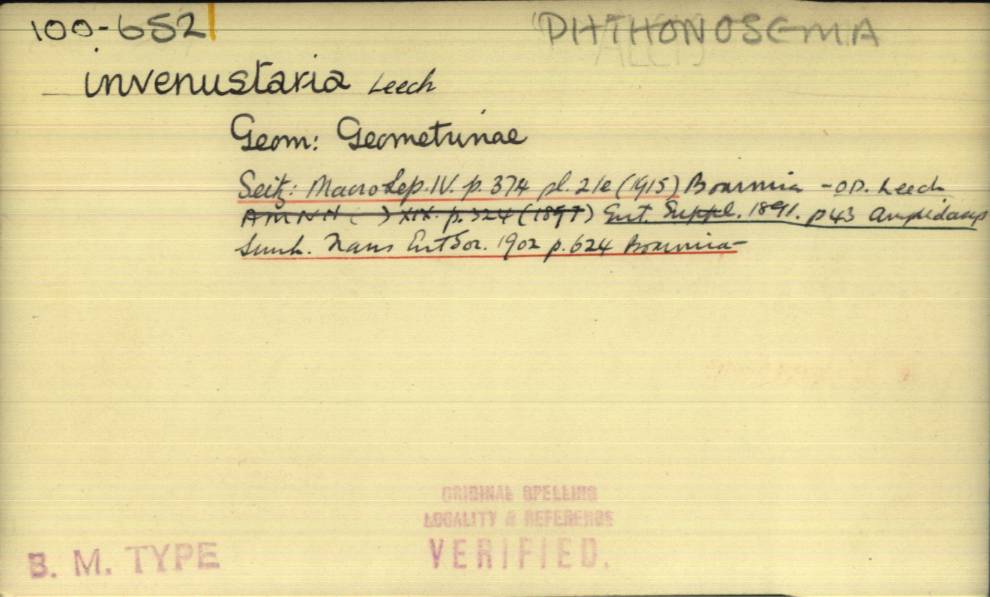 100-652
PHTHONOSEMA
invenustaria Leech
Geom: Geometrinae
Seitz: MacroLep. IV. p. 374 pl. 21e (1915) Boarmia - OD. Leech
AMNH ( ) XIX. p. 324 (1897) Ent. Suppl. 1891. p 43 Amphidasys
Swinh. Trans Ent Soc. 1902 p. 624 Boarmia
ORIGINAL SPELLING
LOCALITY & REFERENCE
VERIFIED.
B. M. TYPE